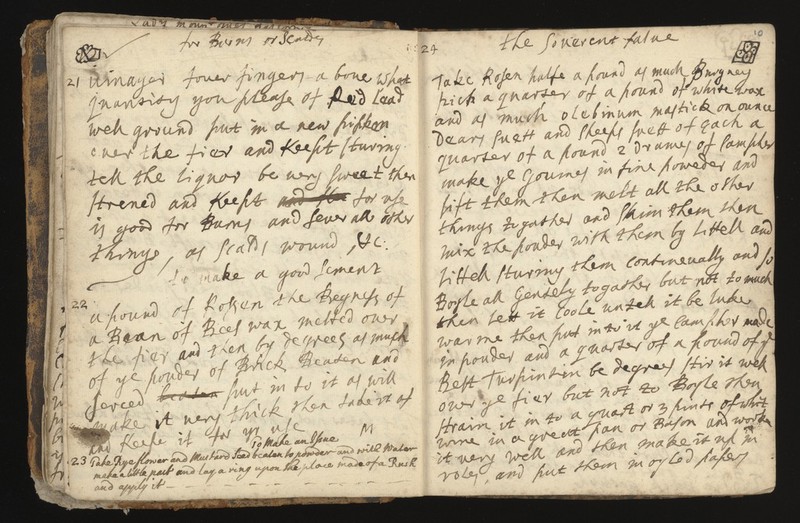 for Burns or Scalds
21 vinager fower fingers a bove what
quansity you please of Red Lead
well ground put in a new pipkin
over the fier and Keept sturing
tell the liquor be very sweet then
strened and Keept for use
is good for Burns and severall other
things, as scalds wound, &c:
to make a good sement
22 a pound of Rosen the Beyness of
a Bean of Bees wax melted over
the fier and then by degrees as much
of ye pouder of Brick Beaten and
serced put in to it as will
make it very thick then take it of
and Keepe it for yr use
To Make an Issue M
23 Take Rye flower and Mustard Seed beaten to powder and with Water
make a little past and lay a ring upon the place made of a Rush
and apply it
24 the Soverent salve
10
Take Rosen halfe a pound as much Burgney
pich a quarter of a pound of white wax
and as much olebinum mastick on ounce
Dears suett and sheeps suett of Each a
quarter of a pound 2 drames of Campher
make ye Goumes in fine poweder and
sift them then melt all the other
things togather and skim them then
mix the pouder with them by Littell and
Littell sturing them continevally and so
Boyle all gentely togather but not to much
then lett it Coole untell it be luke
warme then put into it ye Camphor made
in pouder and a quarter of a pound of ye
Best Turpintin be degrees stir it well
over ye fier but not to Boyle then
straim it in to a quart or 3 pints of whit
wine in a greatt pan or Bason and worke
it very well and then make it up in
roles, and put them in oyled papers